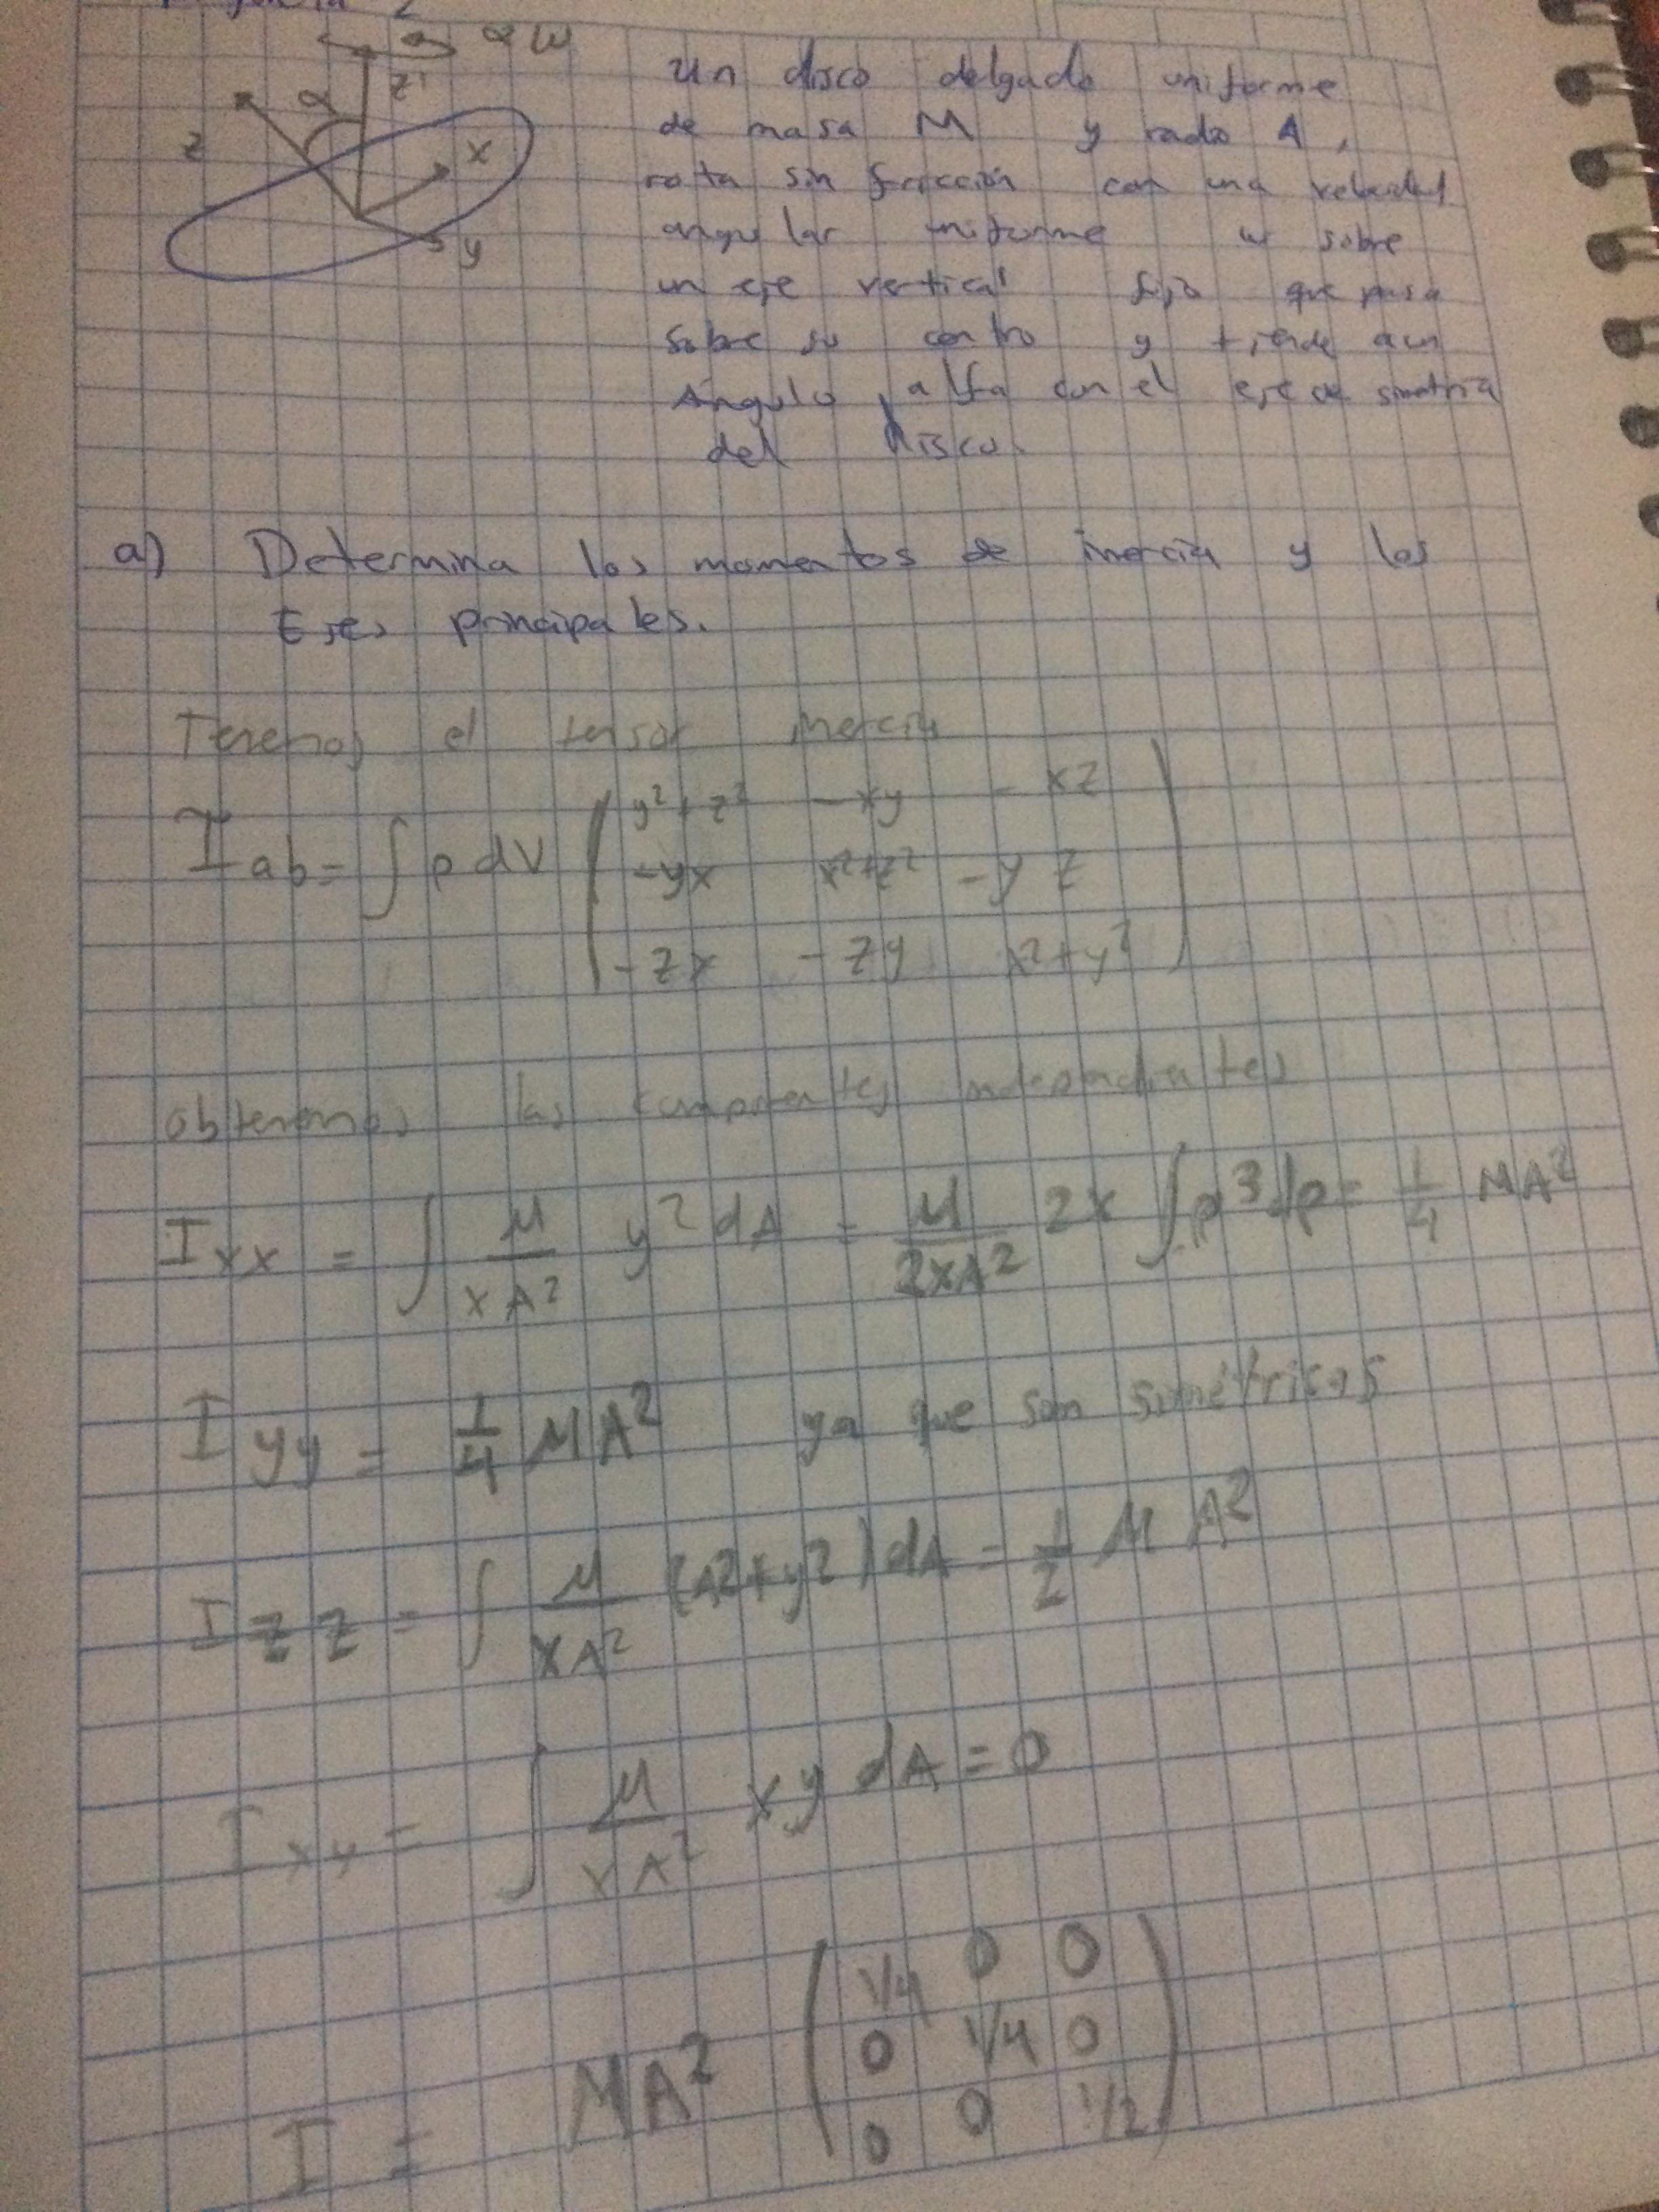 2
α ω
z'
α
z
x
y
Un disco delgado uniforme
de masa M y radio A,
rota sin fricción con una velocidad
angular uniforme ω sobre
un eje vertical fijo que pasa
sobre su centro y tiende a un
Ángulo alfa con el eje de simetria
del disco.
a) Determina los momentos de inercia y los
Ejes principales.
Tenemos el tensor inercia
I ab = ∫ ρ dV ( y²+z² -xy -xz
-yx x²+z² -yz
-zx -zy x²+y² )
obtenemos las componentes independientes
Ixx = ∫ M/πA² y² dA = M/2πA² 2π ∫ρ³dρ = 1/4 MA²
Iyy = 1/4 MA² ya que son simétricos
Izz = ∫ M/πA² (A²+y²) dA = 1/2 MA²
Ixy = ∫ M/πA² xy dA = 0
I = MA² ( 1/4 0 0
0 1/4 0
0 0 1/2 )